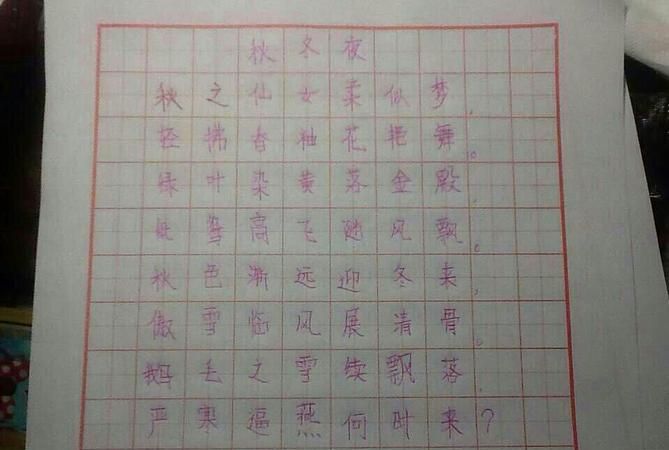 秋冬夜
秋之仙女柔似梦,
轻拂杳袖花艳舞。
绿叶染黄落金殿,
鸳高飞随风飘。
秋色渐远迎冬来,
傲雪临风展清骨。
鹅毛之雪续飘落,
严寒逼燕何时来?